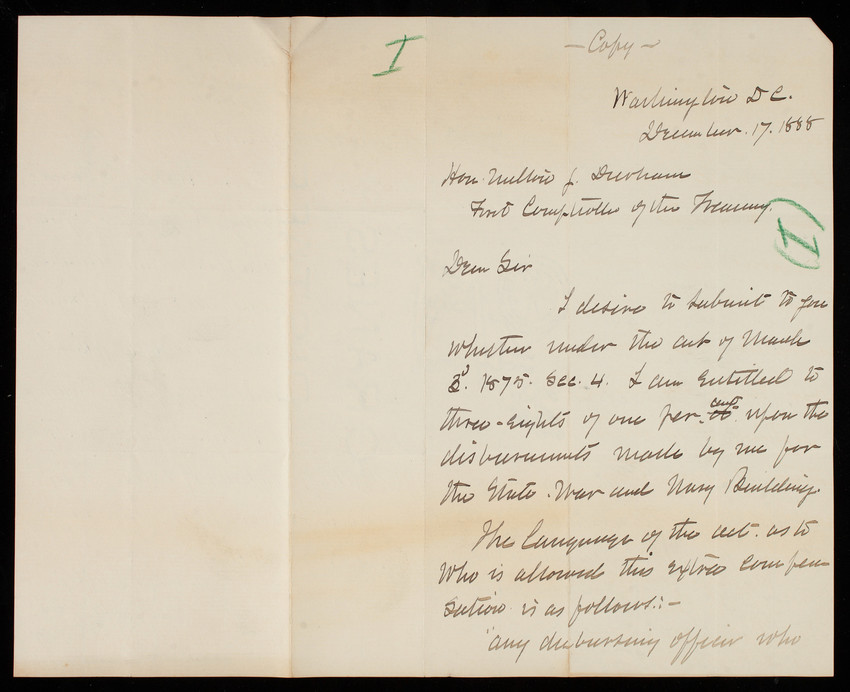 I
- Copy -
Washington D C.
December. 17. 1888
Hon. Milton J. Durham
First Comptroller of the Treasury.
(I)
Dear Sir
I desire to submit to you
whether under the act of March
3. 1875. Sec. 4. I am entitled to
three-eights of one per. cent upon the
disbursements made by me for
the State. War and Navy Building.
The language of the act. as to
who is allowed this extra compen-
sation is as follows:-
"any disbursing officer who